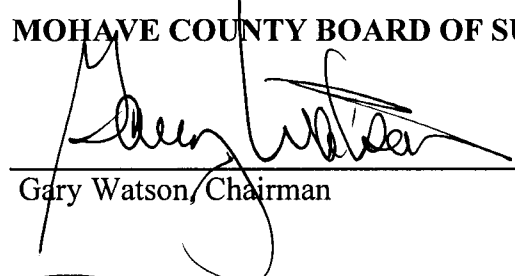 MOHAVE COUNTY BOARD OF SU
Gary Watson
Gary Watson, Chairman